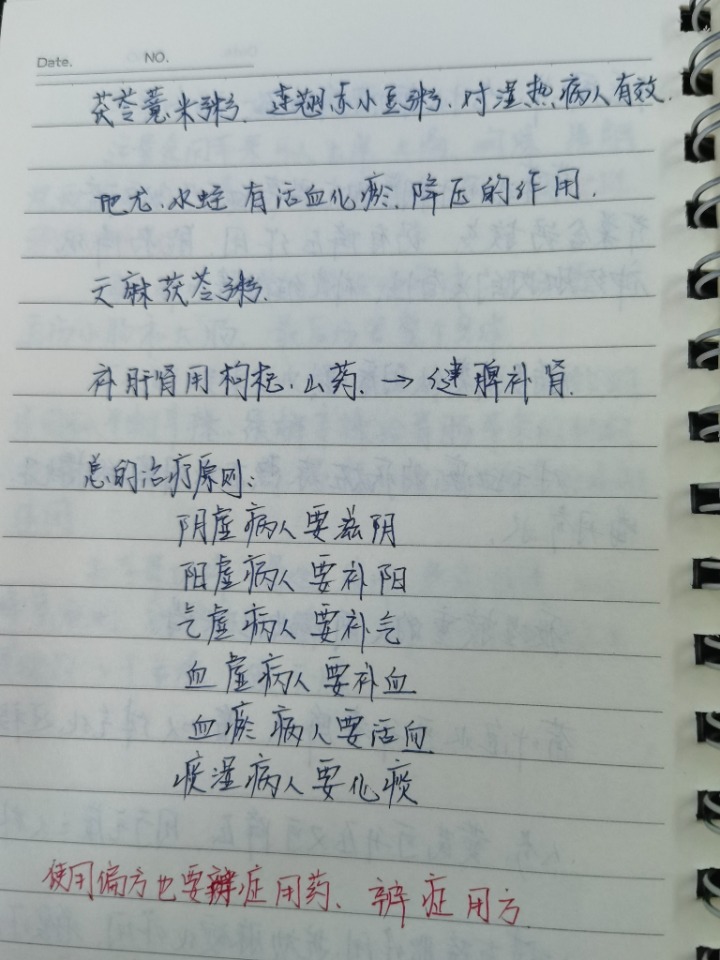 Date. NO.
茯苓薏米粥、连翘赤小豆粥、对湿热病人有效.
地龙、水蛭有活血化瘀、降压的作用.
天麻茯苓粥.
补肝肾用枸杞、山药、→健脾补肾.
总的治疗原则:
阴虚病人要滋阴
阳虚病人要补阳
气虚病人要补气
血虚病人要补血
血瘀病人要活血
痰湿病人要化痰
使用偏方也要辨症用药、辨症用方